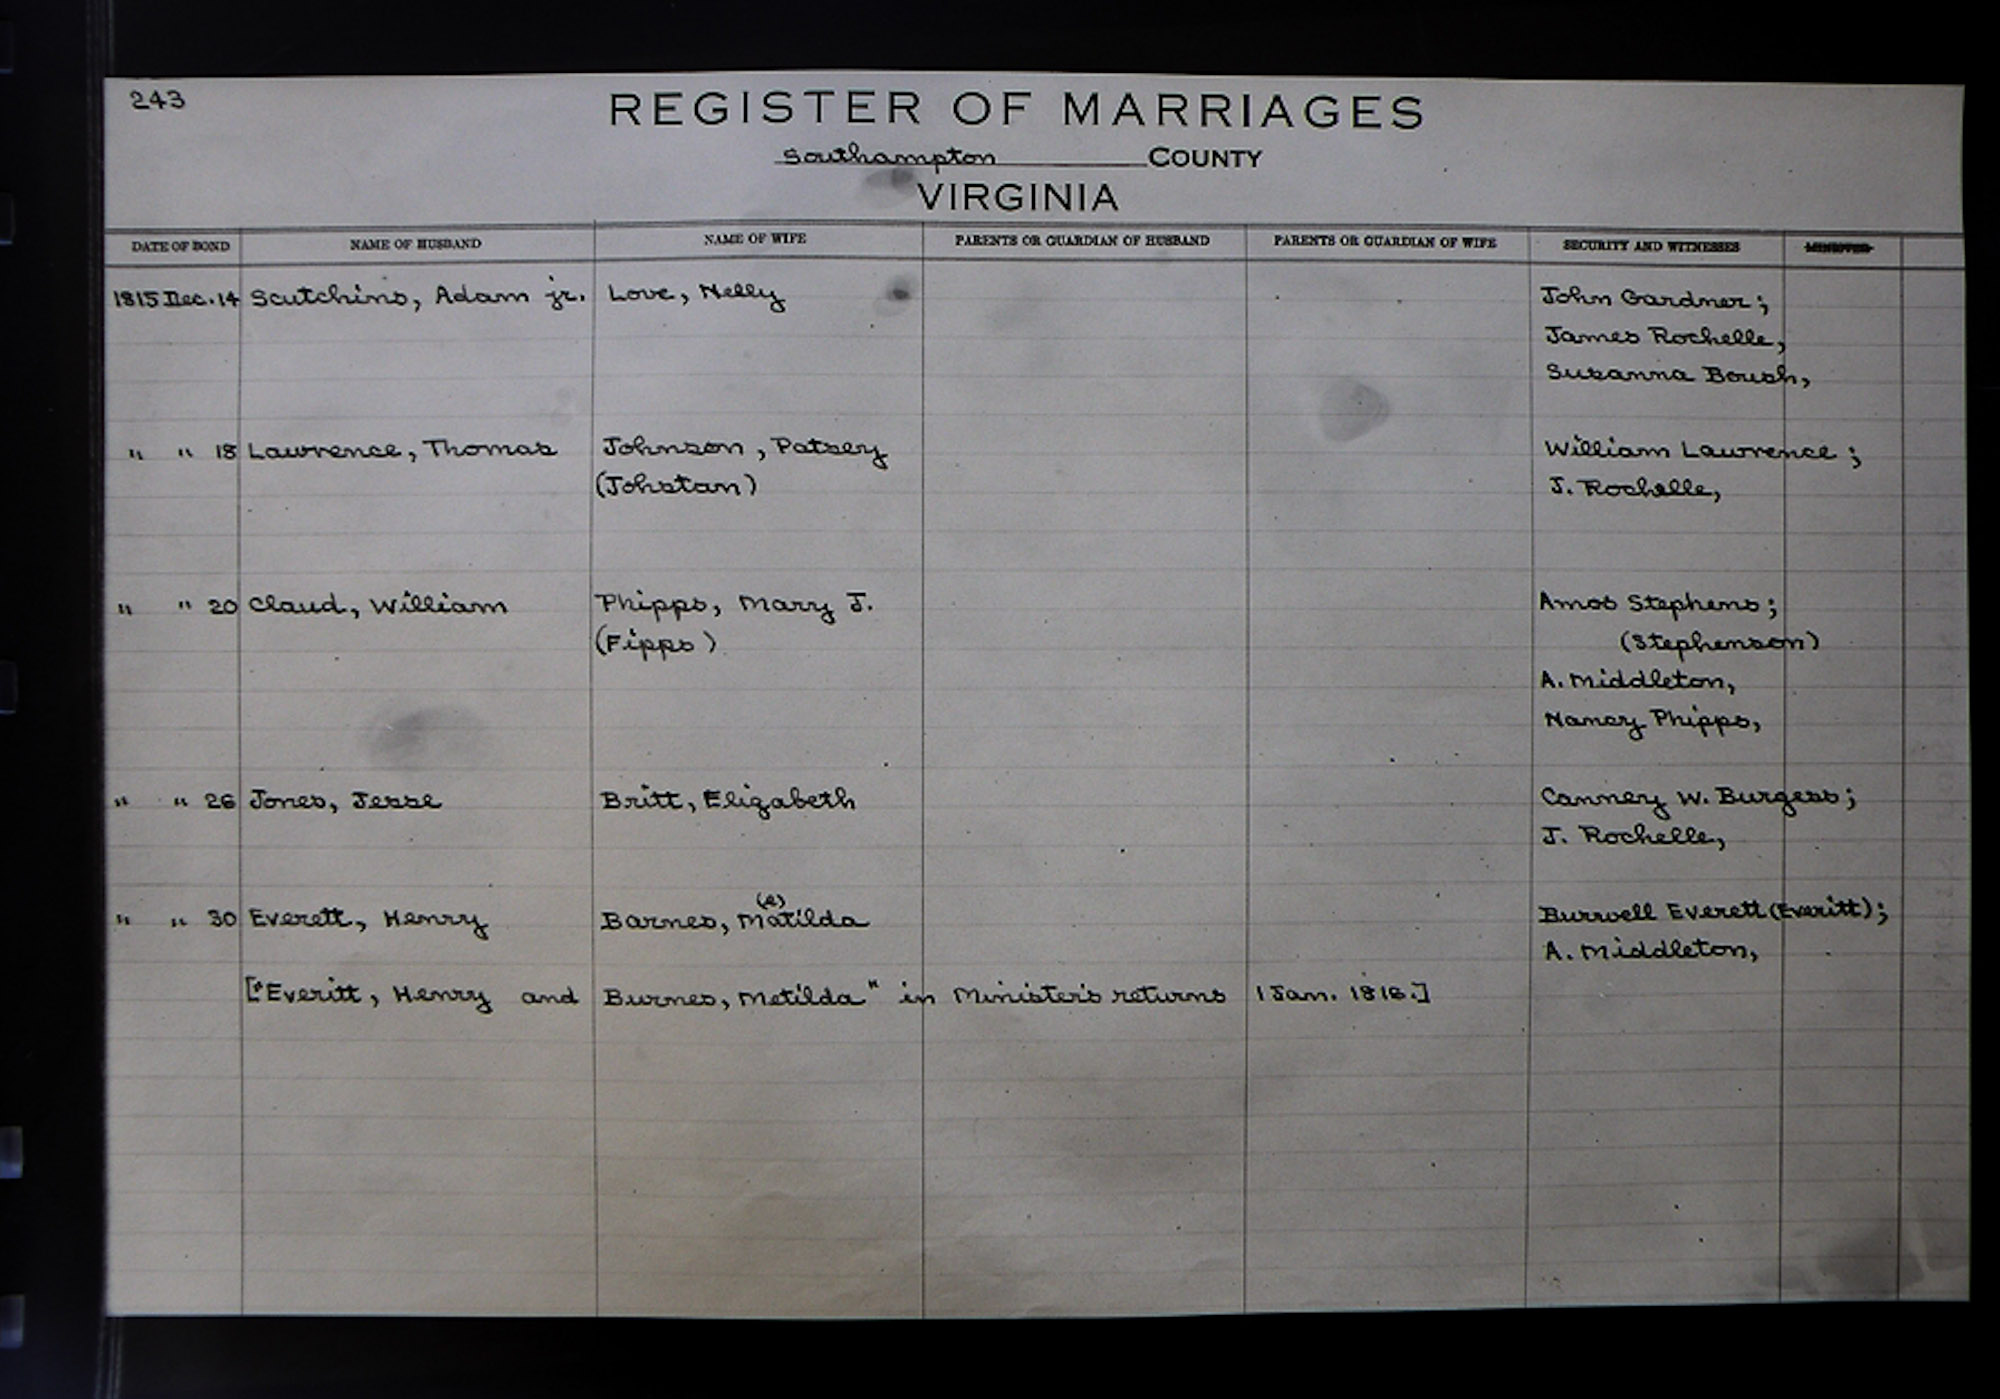 243
REGISTER OF MARRIAGES
Southampton COUNTY
VIRGINIA
DATE OF BOND NAME OF HUSBAND NAME OF WIFE PARENTS OR GUARDIAN OF HUSBAND PARENTS OR GUARDIAN OF WIFE SECURITY AND WITNESSES MINISTER
1815 Dec. 14 Scutchins, Adam jr. Love, Nelly John Gardner;
James Rochelle,
Susanna Boush,
" " 18 Lawrence, Thomas Johnson, Patsey William Lawrence;
(Johstan) J. Rochelle,
" " 20 Claud, William Phipps, Mary J. Amos Stephens;
(Fipps) (Stephenson)
A. Middleton,
Nancy Phipps,
" " 26 Jones, Jesse Britt, Elizabeth Canney W. Burgess;
J. Rochelle,
(e)
" " 30 Everett, Henry Barnes, Matilda Burwell Everett (Everitt);
A. Middleton,
["Everitt, Henry and Burnes, Metilda" in Minister's returns 1 Jan. 1816.]